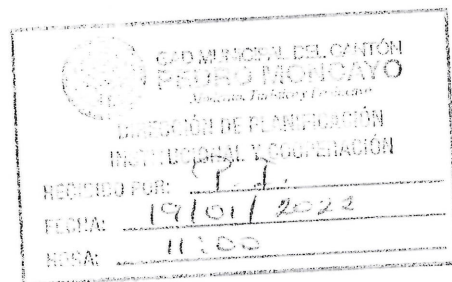 GAD MUNICIPAL DEL CANTÓN
PEDRO MONCAYO
DIRECCIÓN DE PLANIFICACIÓN
INSTITUCIONAL Y COOPERACIÓN
RECIBIDO POR:
FECHA: 19/01/2022
HORA: 11:00